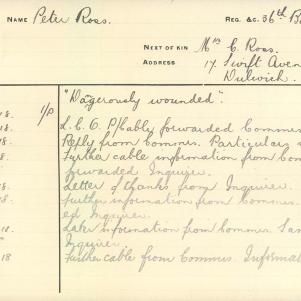 NAME Peter Ross. REG. &C. 36th B
NEXT OF KIN Mrs C. Ross.
ADDRESS 17 Swift Aven
Dulwich.
"Dangerously wounded".
18. 1/P L.C.O. P/Cably forwarded Commrs
Reply from Commrs. Particulars
18. Further cable information from Com
forwarded Inquirer.
Letter of thanks from Inquirer.
further information from Commrs.
ed Inquirer.
Later information from Commrs. San
Inquirer.
18 Further cable from Commrs. Informat